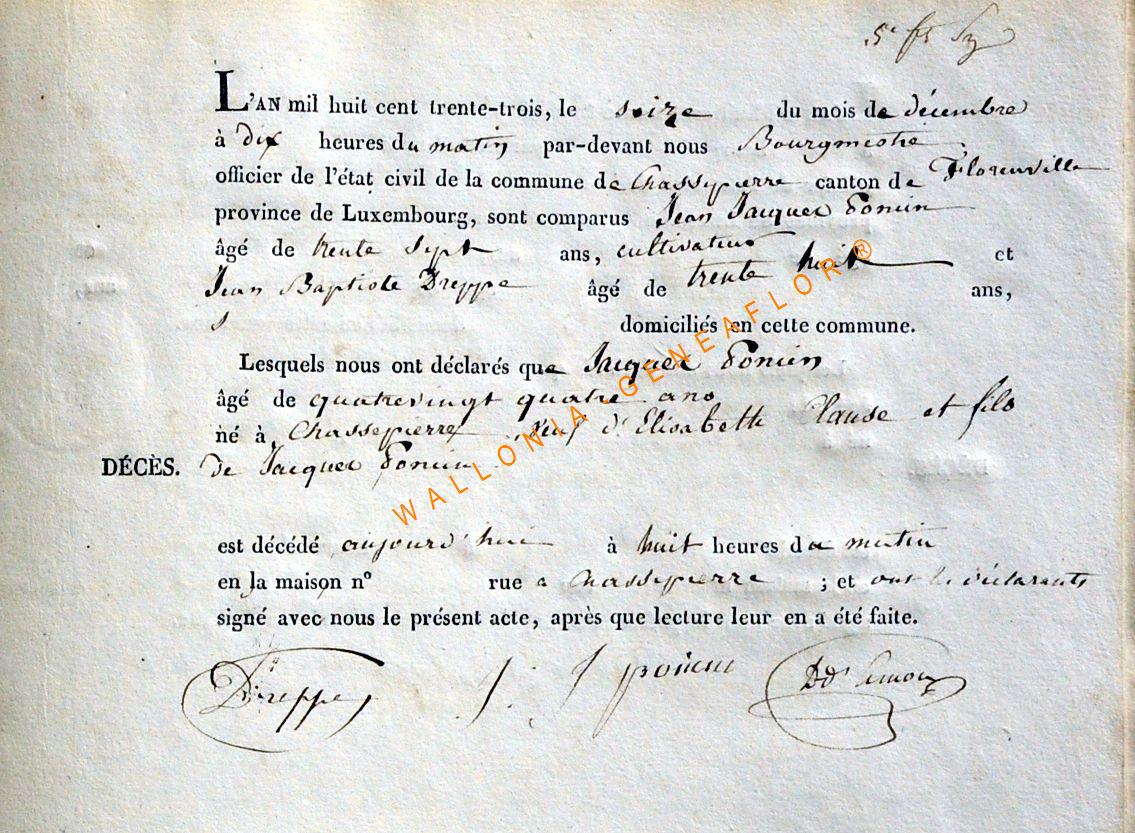 L'AN mil huit cent trente-trois, le seize du mois de décembre
à dix heures du matin par-devant nous Bourgmestre
officier de l'état civil de la commune de Chassepierre canton de Florenville
province de Luxembourg, sont comparus Jean Jacques Poncin
âgé de trente sept ans, cultivateur et
Jean Baptiste Dreppe âgé de trente huit ans,
domiciliés en cette commune.
Lesquels nous ont déclarés que Jacques Poncin
âgé de quatrevingt quatre ans
né à Chassepierre veuf d'Elisabeth Clause et fils
DÉCÈS. de Jacques Poncin
est décédé aujourd'hui à huit heures du matin
en la maison nº rue a Chassepierre ; et ont les déclarants
signé avec nous le présent acte, après que lecture leur en a été faite.
Dreppe J: J poncin
WALLONIA GENEAFLOR ®